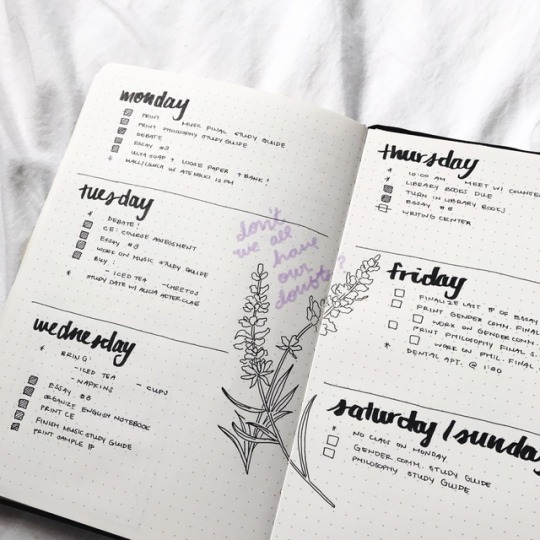 monday
PRINT MUSIC FINAL STUDY GUIDE
PRINT PHILOSOPHY STUDY GUIDE
DEBATE
ESSAY #8
ULTA SOAP + LOOSE PAPER + BANK!
MALL/LUNCH W/ 12 PM
tuesday
DEBATE!
CE: COURSE ASSESSMENT
ESSAY #8
WORK ON MUSIC STUDY GUIDE
BUY:
- ICED TEA - CHEETOS
STUDY DATE W/ ALICIA AFTER CLASS
wednesday
BRING:
- ICED TEA - CUPS
- NAPKINS
ESSAY #8
ORGANIZE ENGLISH NOTEBOOK
PRINT CE
FINISH MUSIC STUDY GUIDE
PRINT SAMPLE
don't
we all
have
our
doubts?
thursday
10:00 AM MEET W/ COUNSEL
LIBRARY BOOKS DUE
TURN IN LIBRARY BOOKS
ESSAY #8
WRITING CENTER
friday
FINALIZE LAST OF ESSAY
PRINT GENDER COMM. FINAL
WORK ON GENDER COMM.
PRINT PHILOSOPHY FINAL S
WORK ON PHIL. FINAL
DENTAL APT. @ 1:00
saturday / sunday
NO CLASS ON MONDAY
GENDER COMM. STUDY GUIDE
PHILOSOPHY STUDY GUIDE